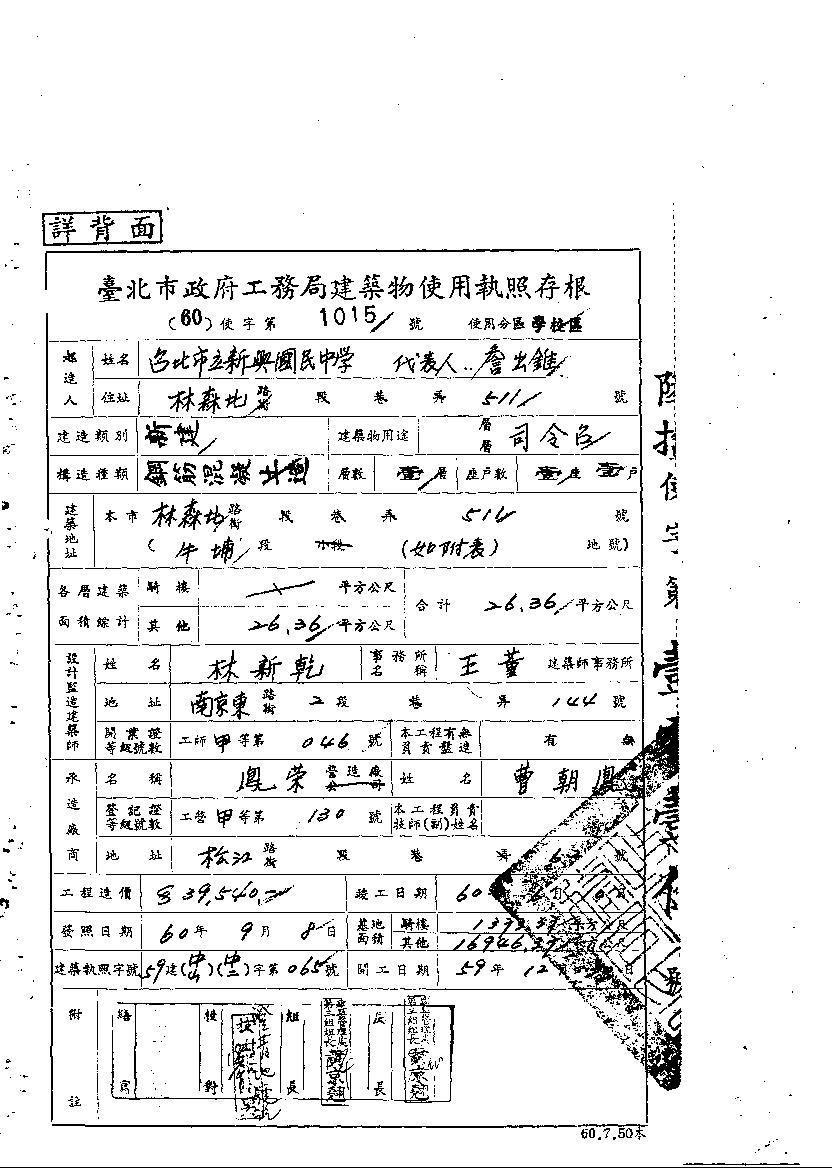 詳背面
臺北市政府工務局建築物使用執照存根
(60)使字第 1015 號 使用分區 學校區
起造人 姓名 台北市立新興國民中学 代表人..詹出錐
住址 林森北 路街 段 巷 弄 511 號
建造類別 新建 建築物用途 層層 司令台
構造種類 鋼筋混凝土造 層數 壹 層 座戶數 壹 座 壹 戶
建築地址 本市 林森北 路街 段 巷 弄 511 號
( 牛埔 段 小段 (如附表) 地號)
各層建築面積綜計 騎樓 平方公尺 合計 26.36 平方公尺
其他 26.36 平方公尺
設計監造建築師 姓名 林新乾 事務所名稱 王董 建築師事務所
地址 南京東 路街 2 段 巷 弄 144 號
開業證等級號數 工師 甲 等第 046 號 本工程有無員責監造 有 無
承造廠商 名稱 鳳荣 營造廠公司 姓名 曹朝鳳
登記證等級號數 工營 甲 等第 130 號 本工程員責技師(副)姓名
地址 松江 路街 段 巷 弄 號
工程造價 839,540 竣工日期 60
發照日期 60 年 9 月 8 日 基地面積 騎樓 平方公尺
其他 平方公尺
建築執照字號 59 建( )( )字第 065 號 開工日期 59 年 12 月 日
附註 繕寫 校對 組長 処長
60.7.50本